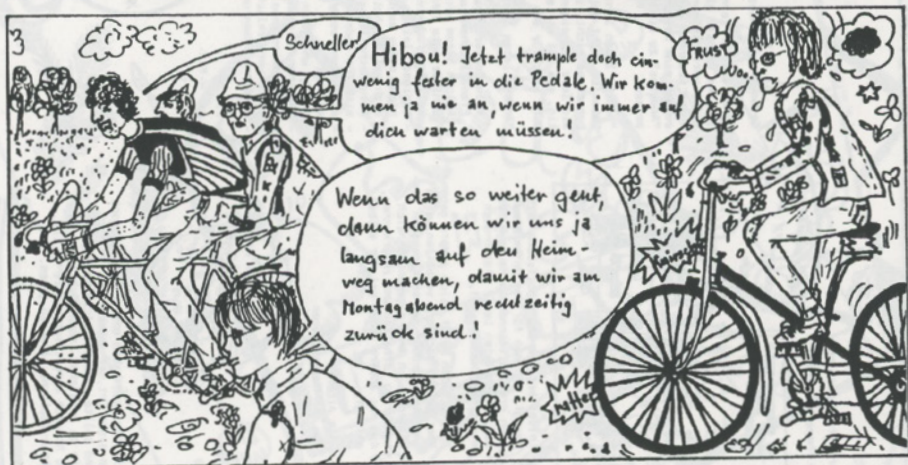 3
Schneller!
Hibou! Jetzt trample doch ein-
wenig fester in die Pedale. Wir kom-
men ja nie an, wenn wir immer auf
dich warten müssen!
Wenn das so weiter geht,
dann können wir uns ja
langsam auf den Heim-
weg machen, damit wir am
Montagabend rechtzeitig
zurück sind!
FRUST